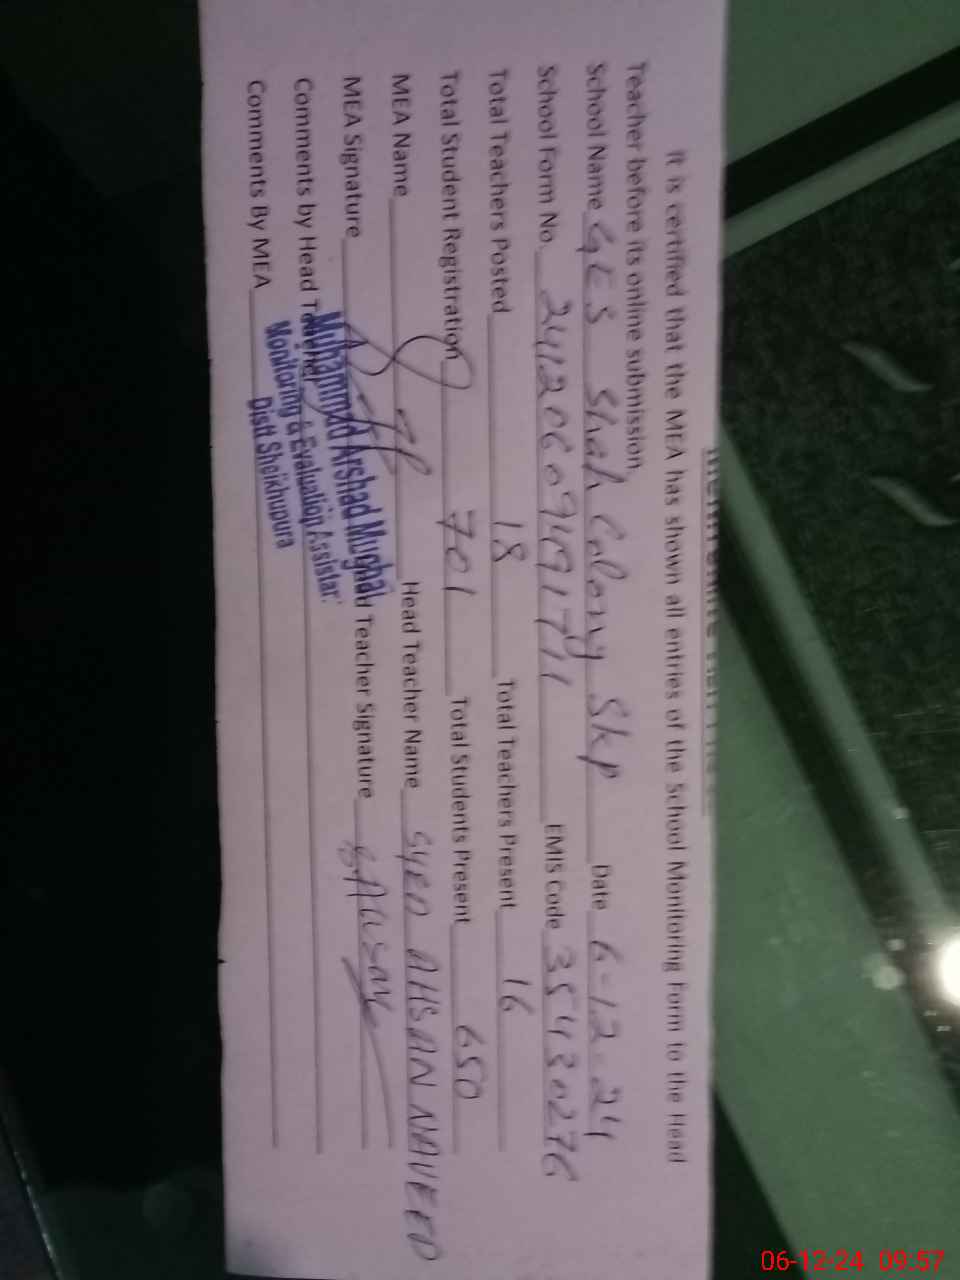 It is certified that the MEA has shown all entries of the School Monitoring Form to the Head
Teacher before its online submission.
School Name GES Shah Colony Skp Date 6-12-24
School Form No. EMIS Code 35430276
Total Teachers Posted 18 Total Teachers Present 16
Total Student Registration 701 Total Students Present 650
MEA Name Head Teacher Name SYED AHSAN NAVEED
MEA Signature Teacher Signature
Comments by Head Teacher
Comments By MEA
Muhammad Arshad Mughal
Monitoring & Evaluation Assistant
Distt Sheikhupura
06-12-24 09:57